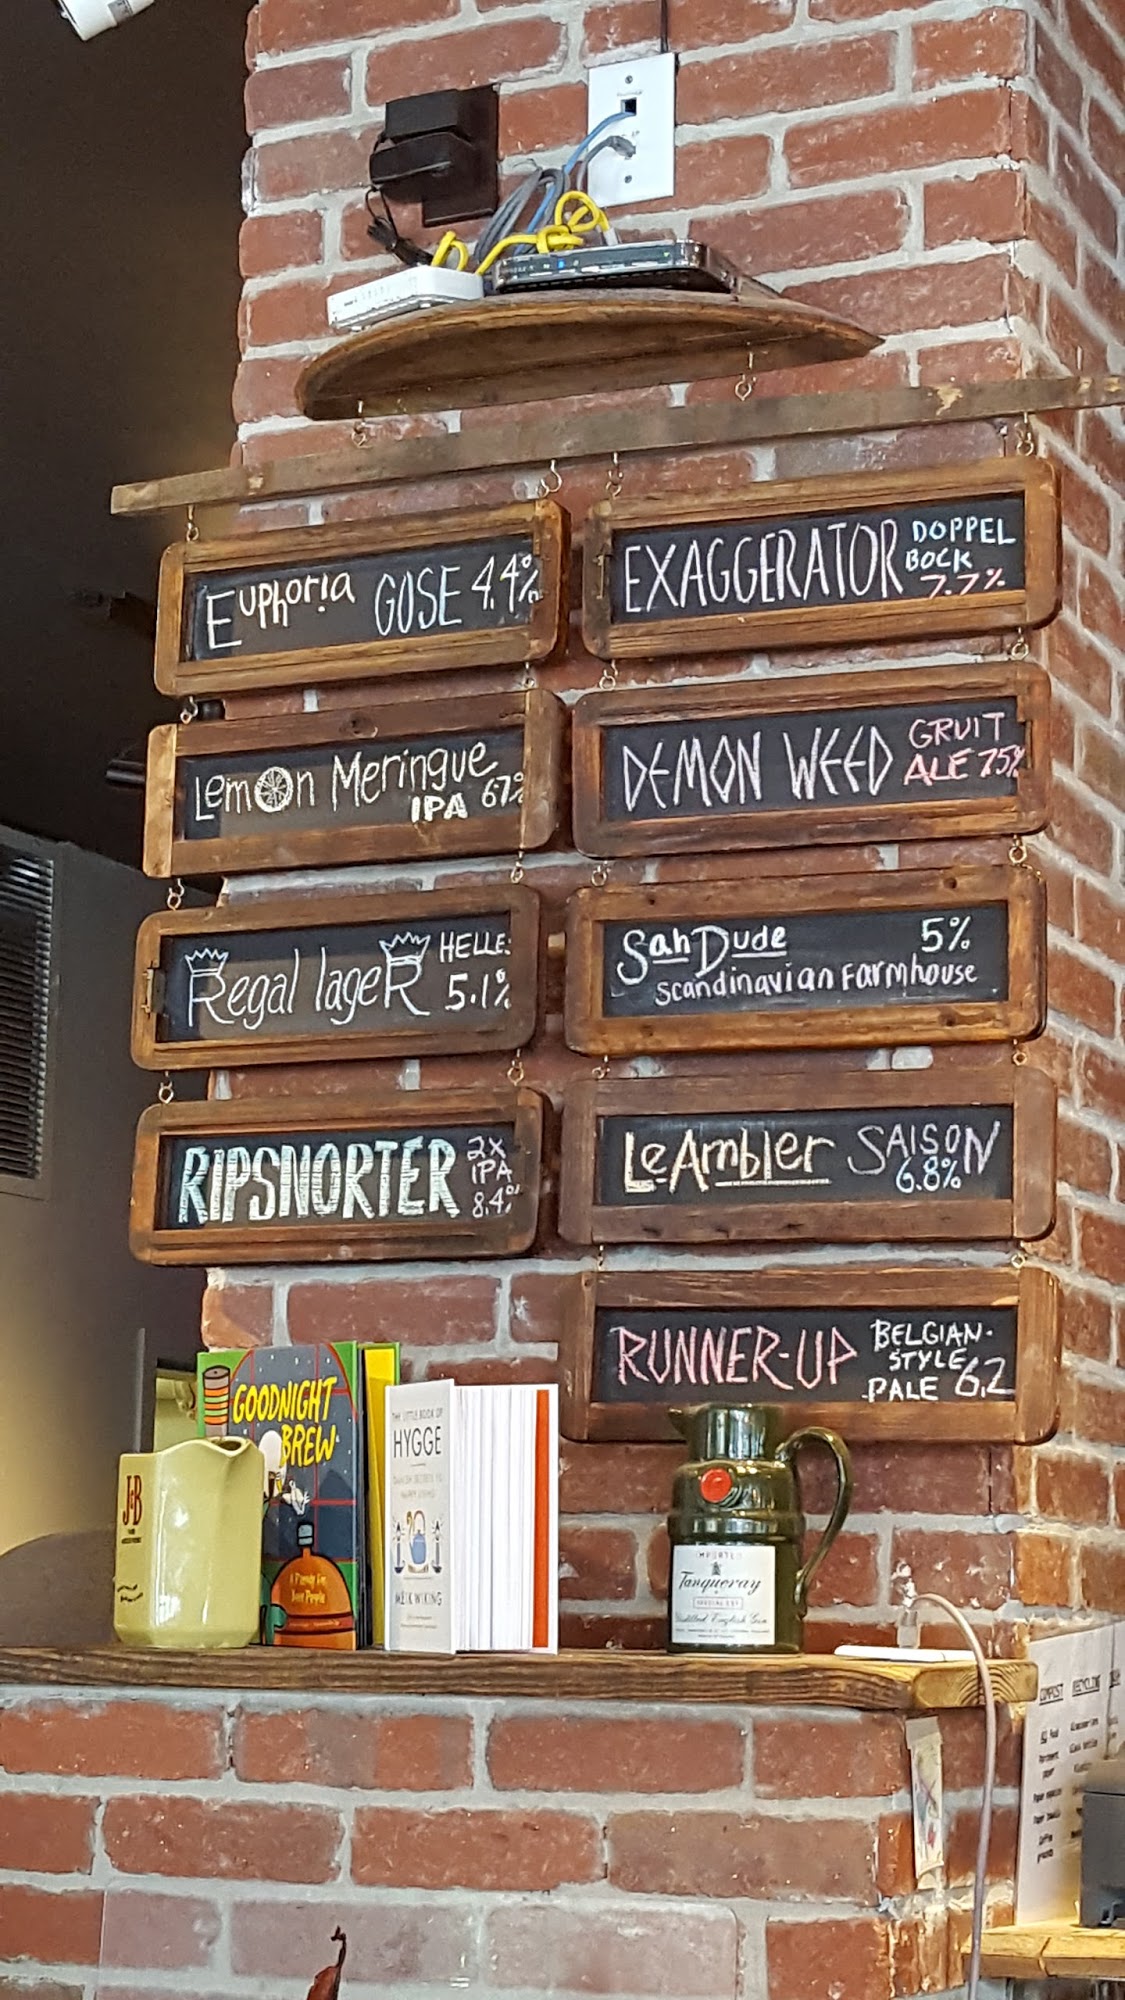 Euphoria GOSE 4.4%
Lemon Meringue
IPA 6.7%
Regal lageR HELLE
5.1%
RIPSNORTER 2X
IPA
8.4%
EXAGGERATOR DOPPEL
BOCK
7.7%
DEMON WEED GRUIT
ALE 7.5%
Sah Dude 5%
Scandinavian Farmhouse
Le Ambler SAISON
6.8%
RUNNER-UP BELGIAN-
STYLE
PALE 6.2
J&B
GOODNIGHT
BREW
A Parody for
Beer People
THE LITTLE BOOK OF
HYGGE
DANISH SECRETS TO
HAPPY LIVING
MEIK WIKING
IMPORTED
Tanqueray
SPECIAL DRY
Distilled English Gin
COMPOST RECYCLING